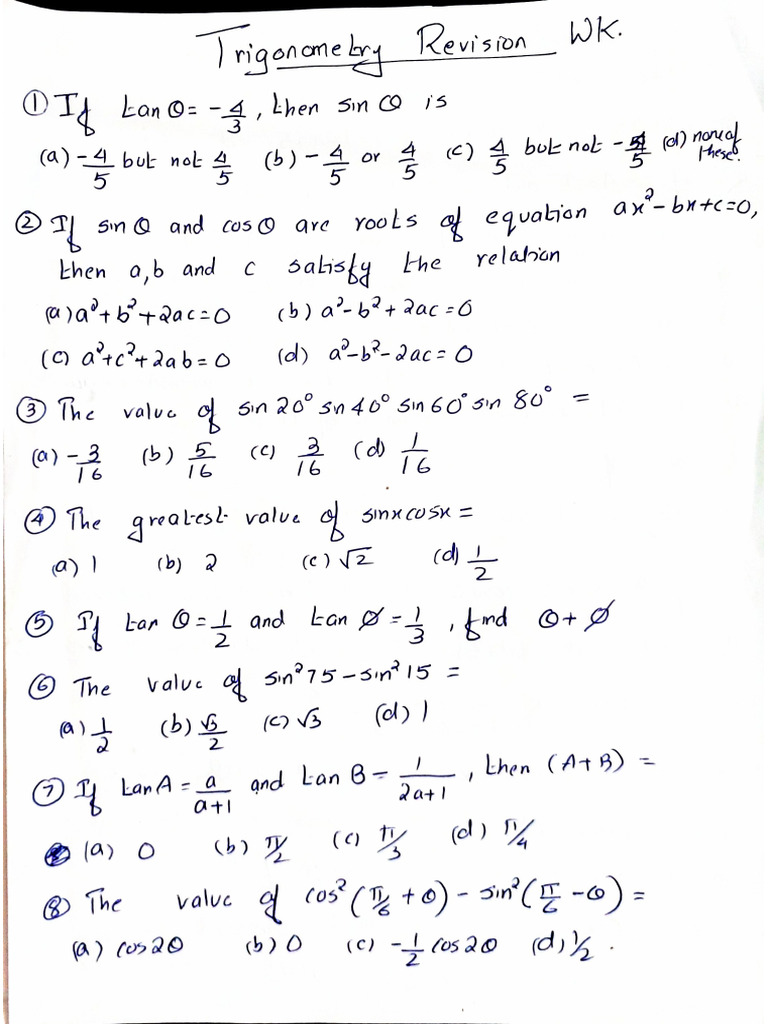 Trigonometry Revision WK.
① If tan θ = -4/3, then sin θ is
(a) -4/5 but not 4/5 (b) -4/5 or 4/5 (c) 4/5 but not -4/5 (d) none of these.
② If sin θ and cos θ are roots of equation ax²-bx+c=0,
then a,b and c satisfy the relation
(a) a²+b²+2ac=0 (b) a²-b²+2ac=0
(c) a²+c²+2ab=0 (d) a²-b²-2ac=0
③ The value of sin 20° sn 40° sin 60° sin 80° =
(a) -3/16 (b) 5/16 (c) 3/16 (d) 1/16
④ The greatest value of sinxcosx =
(a) 1 (b) 2 (c) √2 (d) 1/2
⑤ If tan θ = 1/2 and tan Ø = 1/3, find θ + Ø
⑥ The value of sin²75 - sin²15 =
(a) 1/2 (b) √3/2 (c) √3 (d) 1
⑦ If tanA = a/a+1 and tan B = 1/2a+1, then (A+B) =
(a) 0 (b) π/2 (c) π/3 (d) π/4
⑧ The value of cos²(π/6 + θ) - sin²(π/6 - θ) =
(a) cos2θ (b) 0 (c) -1/2 cos2θ (d) 1/2.